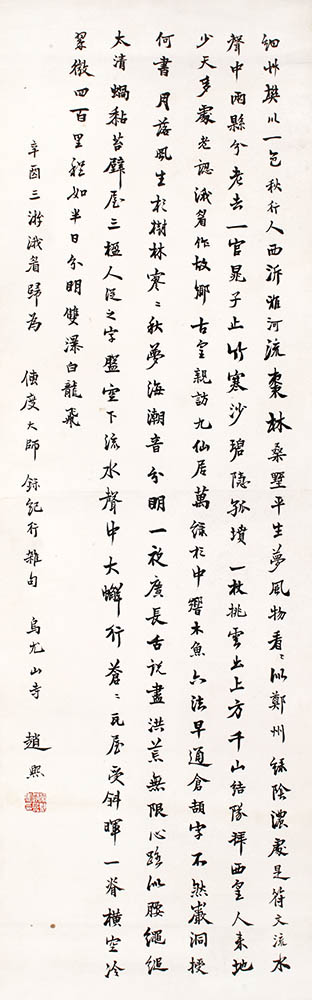 細艸樊川一色秋行人西泝雅河流棗林桑墅平生夢風物看〻似鄭州綠陰濃處是符文流水
聲中兩縣分老去一官晁子止竹寒沙碧隱孤墳一枝挑雲出上方千山結隊拜西皇人來地
少天多處老認涐眉作故鄉古皇親訪九仙居萬綠於中響木魚六法早通倉頡字不然巖洞授
何書月落風生於樹林寒〻秋夢海潮音分明一夜廣長舌說盡洪荒無限心路似腰繩縋
太清蝸黏苔壁屋三楹人從之字盤空下流水聲中大嶰行蒼〻瓦屋受斜暉一脊橫空冷
翠微四百里程如半日分明雙瀑白龍飛
辛酉三游涐眉歸為 傳度大師 錄紀行雜句 烏尤山寺 趙熙